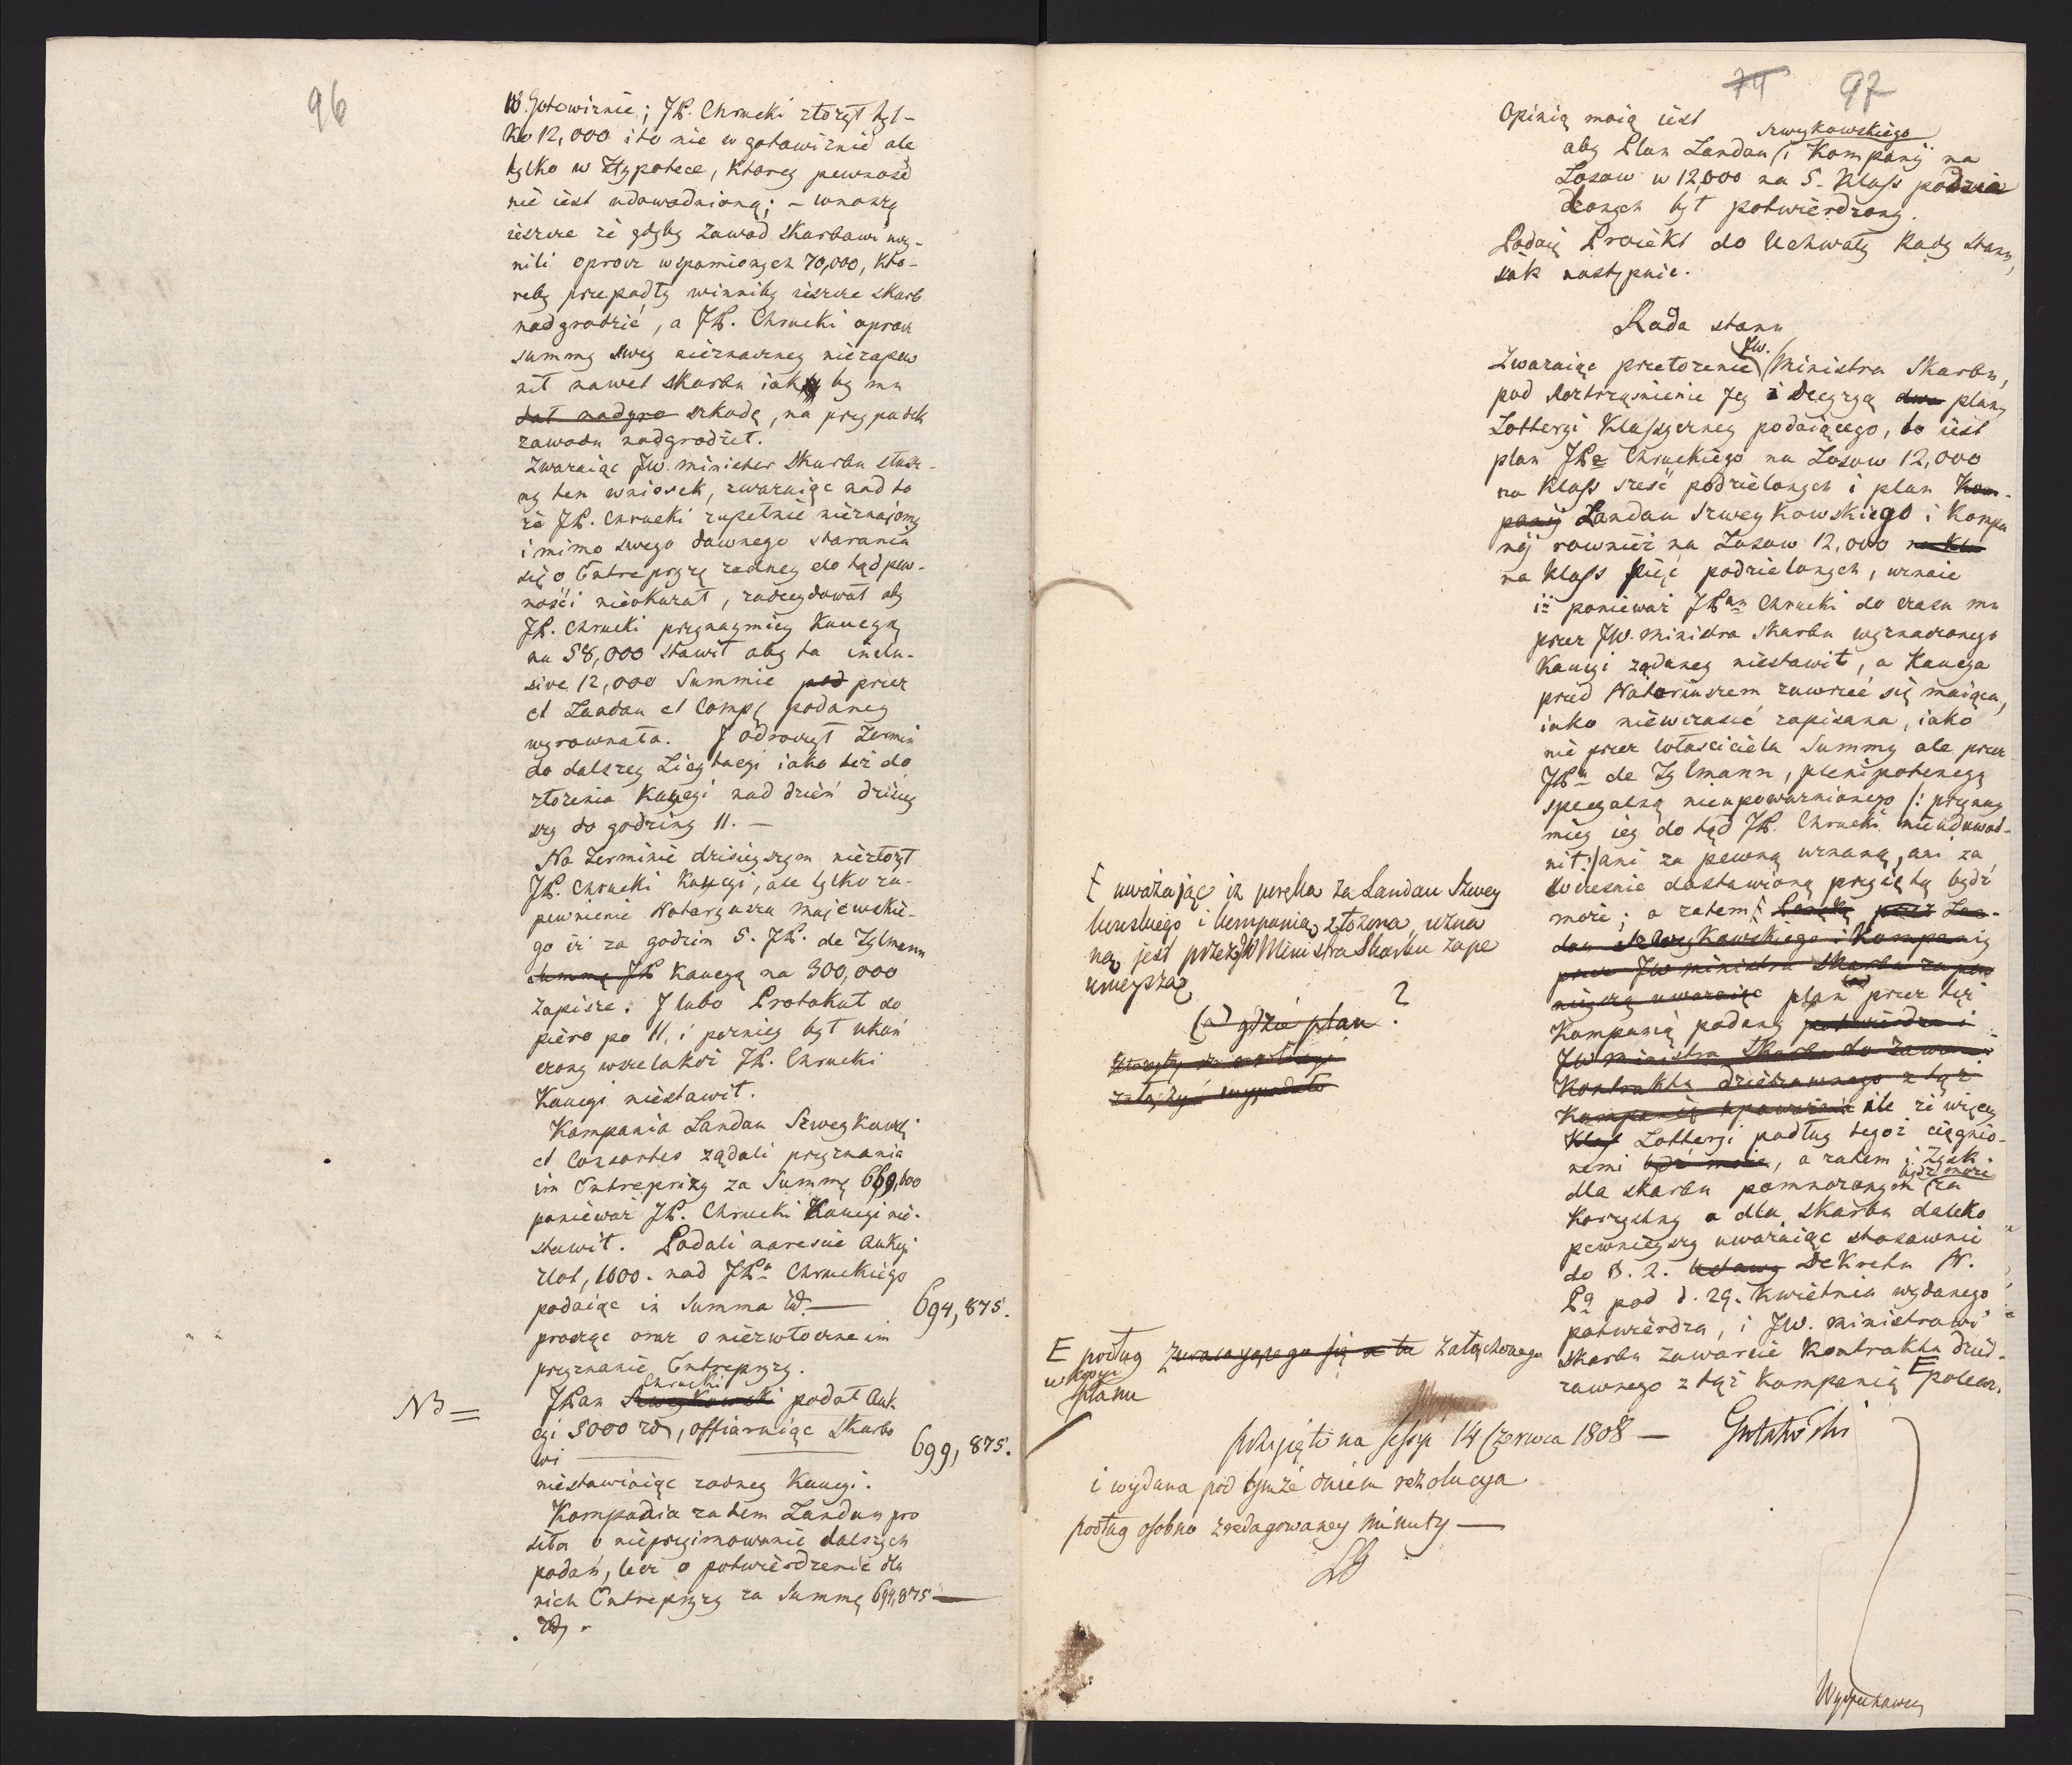 96
w Gotowiznie; JP. Chrucki złożył tyl-
ko 12,000 i to nie w gotowiznie ale
tylko w Hypotece, ktorey pewność
nie iest udowodnioną; – wnoszą
ieszcze że gdyby zawod Skarbowi uczy-
nili oprocz wspomionych 70,000, kto-
reby przepadły winniby ieszcze skarb
nadgrodzić, a JP. Chrucki oprocz
summy swey nieznaczney niezapew
nił nawet Skarbu iak by mu
dał nadgro szkodę, na przypadek
zawodu nadgrodził.
Zwaraiąc JW. minister Skarbu słusz-
ny ten wniosek, zwaraiąc nad to
że JP. Chrucki zupełnie nieznajomy
i mimo swego dawnego starania
się o Entrepryzę żadney do tąd pew-
ności nieokazał, zadecydował aby
JP. Chrucki przynaymniey Kaucyą
na 58,000 stawił aby ta inclu-
sive 12,000 Summie pod przez
et Landau et Comp. podaney
wyrownała. I odroczył Termin
do dalszey Licytacyi iako też do
złożenia Kaucyi nad dzień dzisiey
szy do godziny 11. —
Na Terminie dzisieyszym niezłożył
JP. Chrucki Kaucyi, ale tylko za-
pewnienie Notaryusza Majewskie-
go iż za godzin 5. JP. de Zylmann
summę JP Kaucyą na 300,000
zapisze. I lubo Protokuł do
piero po 11, i pozniey był ukoń
czony wszelakoż JP. Chrucki
Kaucyi niestawił.
Kompania Landau Szweykowski
et Consortes ządali przyznania
im Entrepryzy za Summę 669,600
ponieważ JP. Chrucki Kaucyi nie-
stawił. Podali nareszcie Aukcyi
złot, 1000. nad JPa Chruckiego
podaiąc in Summa zł. — 694,875.
prosząc oraz o niezwłoczne im
przyznanie Entrepryzy.
Chrucki
NB = JPan Szweykowski podał Auk-
cyi 5000 zł, offiaruiąc Skarbo
wi — 699,875.
niestawiaiąc żadney Kaucyi.
Kompania zatem Landau pro
siła o nieprzyimowanie dalszych
podań, lecz o potwierdzenie dla
nich Entrepryzy za Summę 694,875 —
zł.
74 97
Opinią moią iest
Szweykowskiego
aby Plan Landau i Kompanij na
Losow w 12,000 na 5. Klass podzie
lonych był potwierdzony.
Podaię Proiekt do Uchwały Rady Stanu,
iak następuie.
Rada stanu
JW.
Zwaraiąc przełożenie Ministra Skarbu,
pod Roztrząśnienie Jey i Decyzyą dwa plany
Lotteryi Klassyczney podaiącego, to iest
plan JPa Chruckiego na Losow 12,000
na Klass sześć podzielonych i plan Kom-
panij Landau Szweykowskiego i Kompa
nij rownież na Losow 12,000 na Kla
na Klass pięć podzielonych, uznaie
iż ponieważ JPan Chrucki do czasu mu
przez JW. ministra Skarbu wyznaczonego
Kaucyi ządaney niestawił, a Kaucya
przed Notariuszem zawrzeć się maiąca,
iako niewczasie zapisana, iako
nie przez właściciela Summy ale przez
JPa de Zylmann, plenipotencyą
specyalną nieupoważnionego /: przynay
mniey iey do tąd JP. Chrucki nieudowod-
nił :/ ani za pewną uznaną, ani za
wczesnie dostawioną przyięta bydź
może; a zatem Porękę przez Lan-
dau Szweykowskiego i Kompanią
przez JW ministra Skarbu za pew
nieyszą uwaraiąc plan przez tęż
Kompanią podany potwierdza i
JW ministra Skarbu do zawarcia
Kontraktu dzierżawnego z tąż
Kompanią upoważnia ile że więcey
Klass Lotteryi podług tegoż ciągnio-
nemi bydź może, a zatem i Zysk
bydź może
dla skarbu pomnorzonym za
korzystny a dla Skarbu daleko
pewnieyszy uwaraiąc stosownie
do §. 2. Ustawy Dekretu N.
Pa pod d. 29. Kwietnia wydanego
potwierdza, i JW. ministrowi
Skarbu zawarcie Kontraktu dzier-
zawnego z tąż Kompanią poleca.
uważając iż poręka za Landau Szwey
kowskiego i kompanią złożona uzna
ną jest przez JW Ministra Skarbu za pe
wnieyszą
(a) gdzie plan?
załączyć wypadało
E podług znaydującego się a tu załączonego
w kopii
planu
Przyjęto na sessyi 14 Czerwca 1808 —
i wydana pod tymże dniem rezolucya
podług osobno zredagowaney minuty —